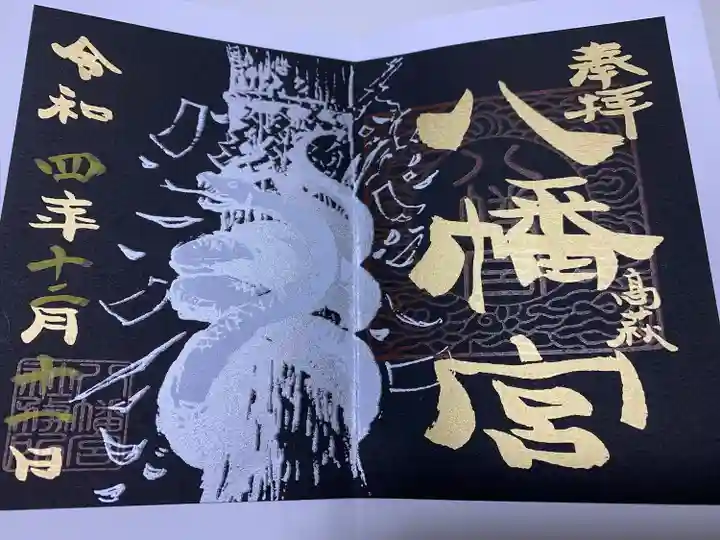 奉拝
八幡宮
高萩
令和四年十二月廿一日